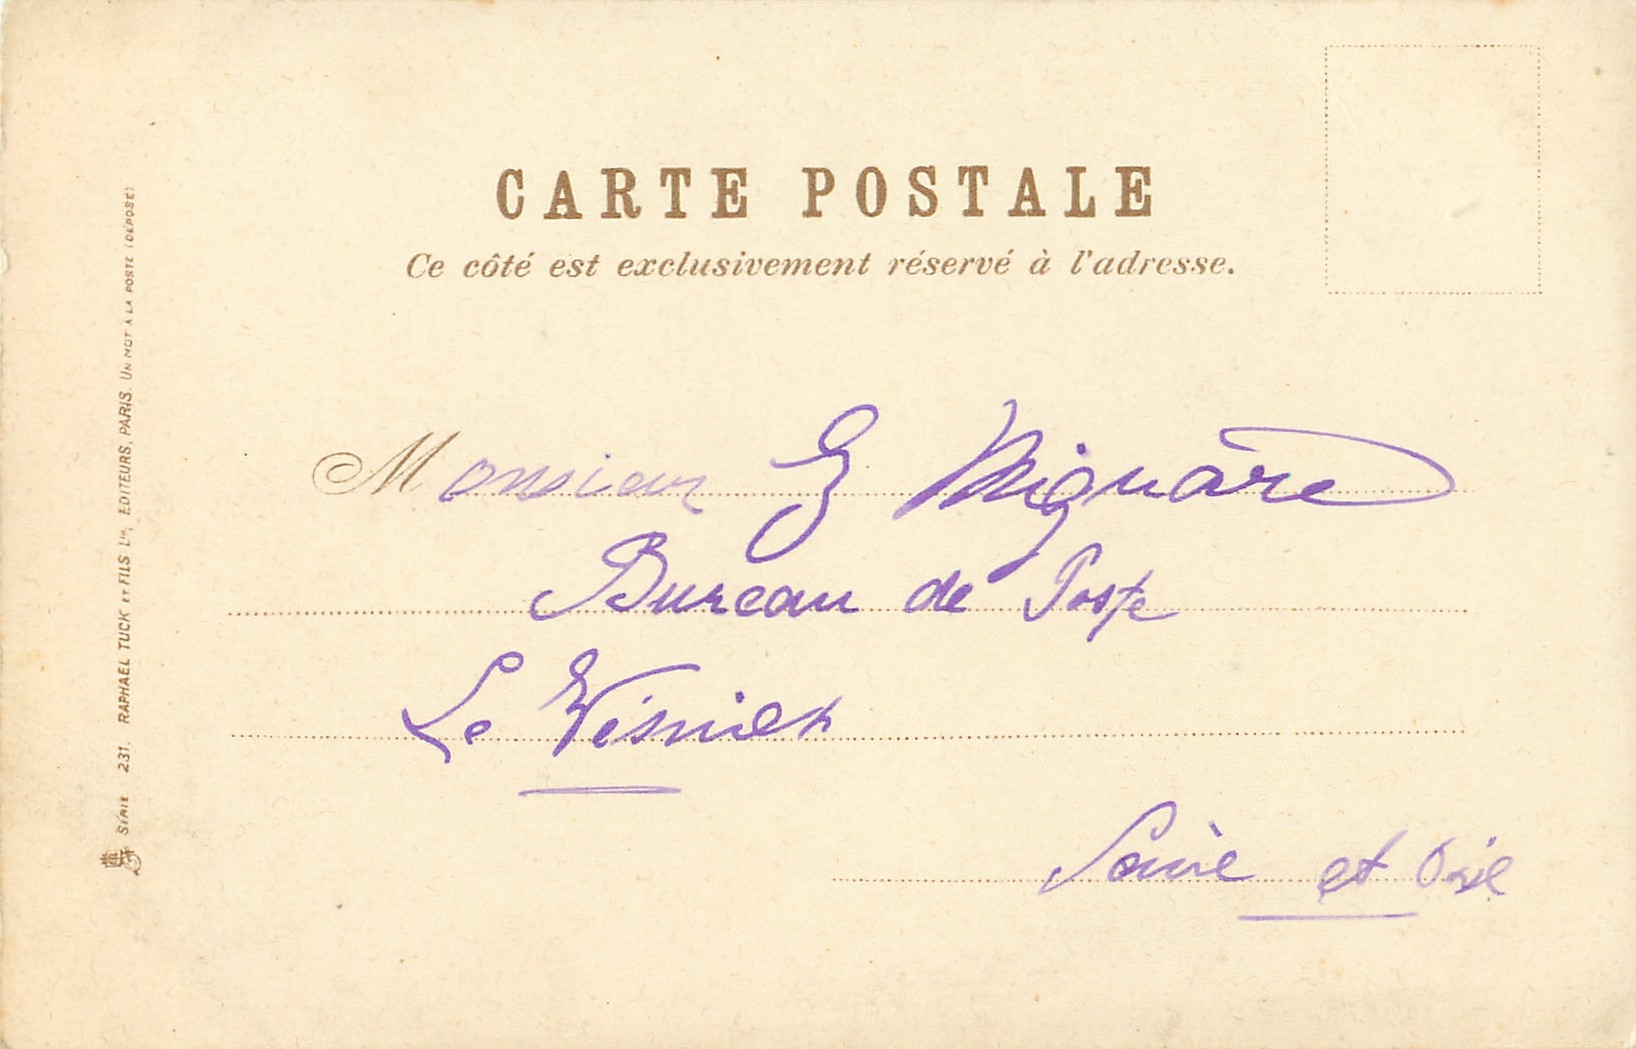 CARTE POSTALE
Ce côté est exclusivement réservé à l'adresse.
Monsieur G Mignare
Bureau de Poste
Le Vésinet
Seine et Oise
SÉRIE 231. RAPHAEL TUCK ET FILS Ltd, EDITEURS, PARIS. UN MOT À LA POSTE (DÉPOSÉ)